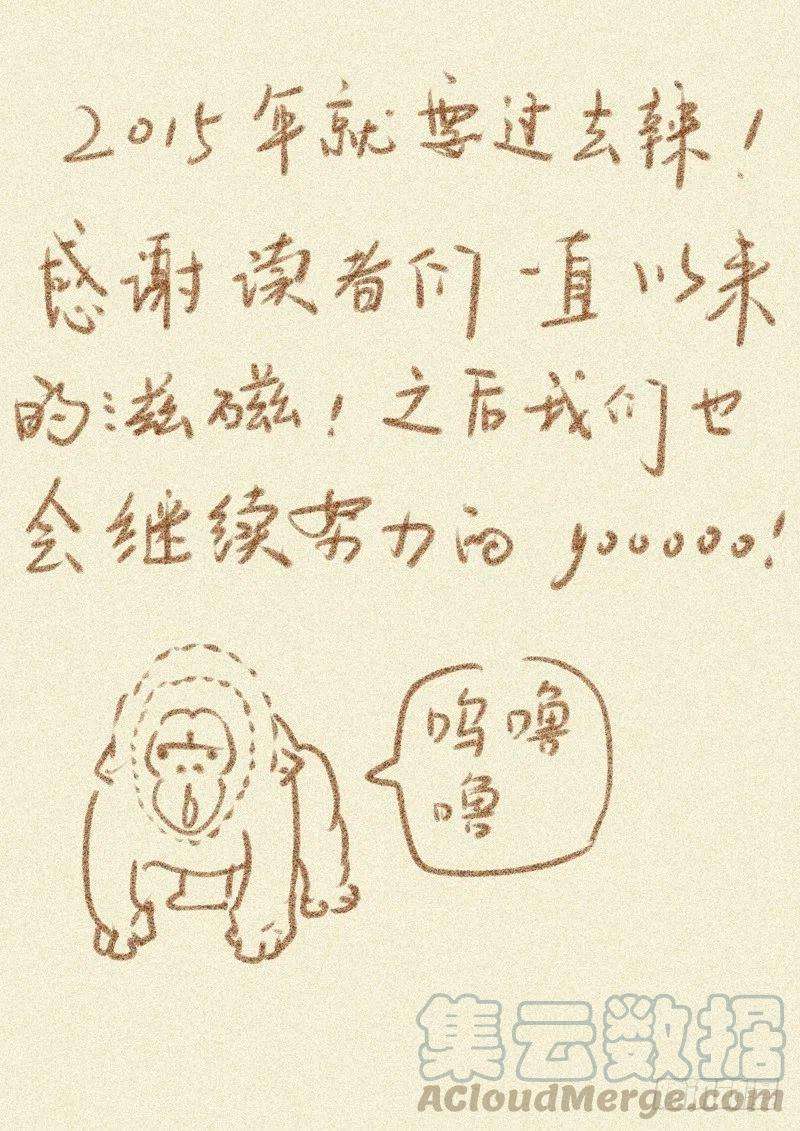 2015年就要过去辣！
感谢读者们一直以来
的滋磁！之后我们也
会继续努力的 yooooo!
呜噜
噜
集云数据
ACloudMerge.com